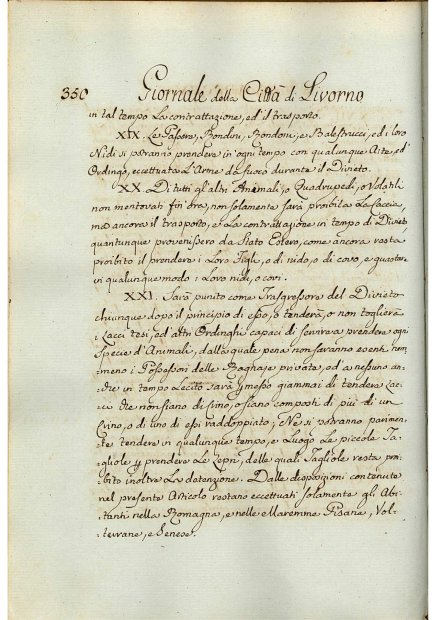 350 Giornale della Città di Livorno
in tal tempo la contrattazione, ed il trasporto.
XIX. Le Passere, Rondini, Rondoni, e Balestrucci, ed i loro
Nidi si potranno prendere in ogni tempo con qualunque Arte, ed
Ordingo, eccettuata l'Arme da fuoco durante il Divieto.
XX. Di tutti gl'altri Animali, o Quadrupedi, o Volatili
non mentovati fin'ora, non solamente sarà proibita la Caccia,
ma ancora il trasporto, e la contrattazione in tempo di Divieto
quantunque provenissero da Stato Estero, come ancora resta
proibito il prendere i loro Figli, e di nido, o di covo, e guastare
in qualunque modo i loro nidi, o covi.
XXI. Sarà punito come Trasgressore del Divieto
chiunque dopo il principio di esso, o tenderà, o non toglierà
i Lacci tesi, ed altri Ordinghi capaci di servire a prendere ogni
specie d'Animali, dalla quale pena non saranno esenti nem-
meno i Possessori delle Ragnaje private, ed a nessuno an-
che in tempo lecito sarà permesso giammai di tendere Lac-
ci che non siano di crino, o siano composti di più di un
Crino, o di uno di essi raddoppiato; Ne si potranno parimen-
te tendere in qualunque tempo, e Luogo le piccole Ta-
gliole per prendere le Lepri, delle quali Tagliole resta proi-
bito inoltre la detenzione. Dalle disposizioni contenute
nel presente Articolo restano eccettuati solamente gli Abi-
tanti nella Romagna, e nelle Maremme Pisana, Vol-
terrane, e Senese.